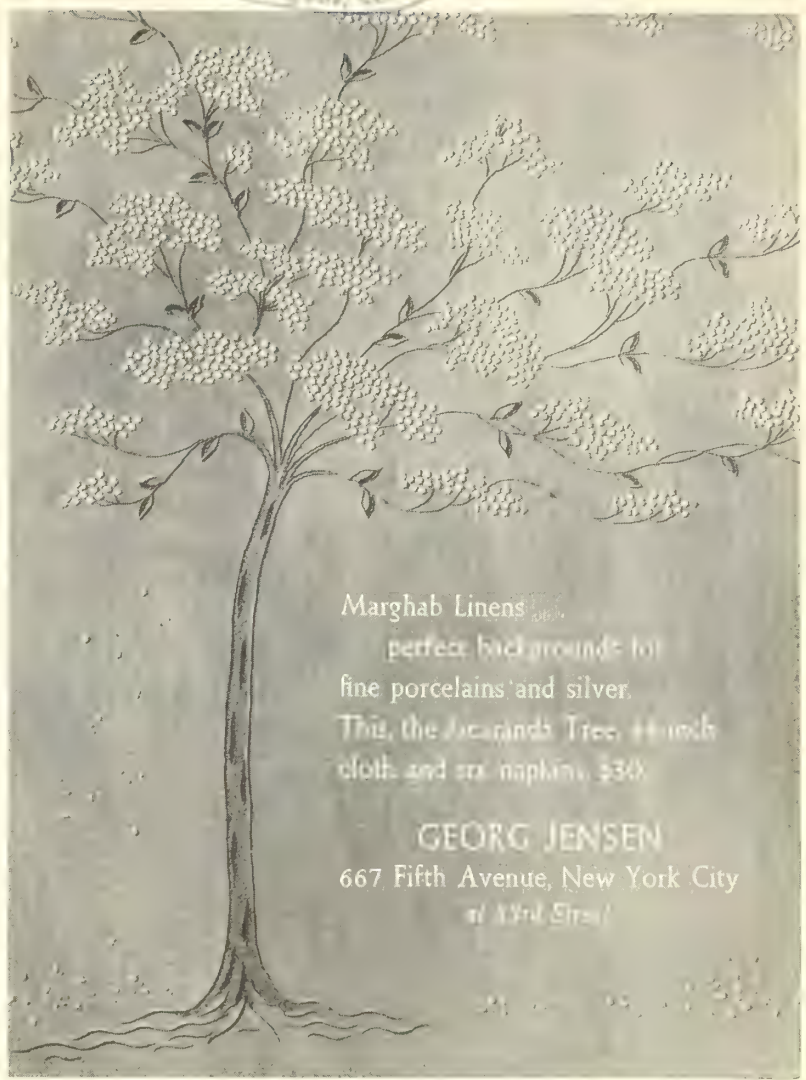 Marghab Linens ...
perfect backgrounds for
fine porcelains and silver.
This, the Jacaranda Tree,
cloth and six napkins, $30.
GEORG JENSEN
667 Fifth Avenue, New York City
at 53rd Street